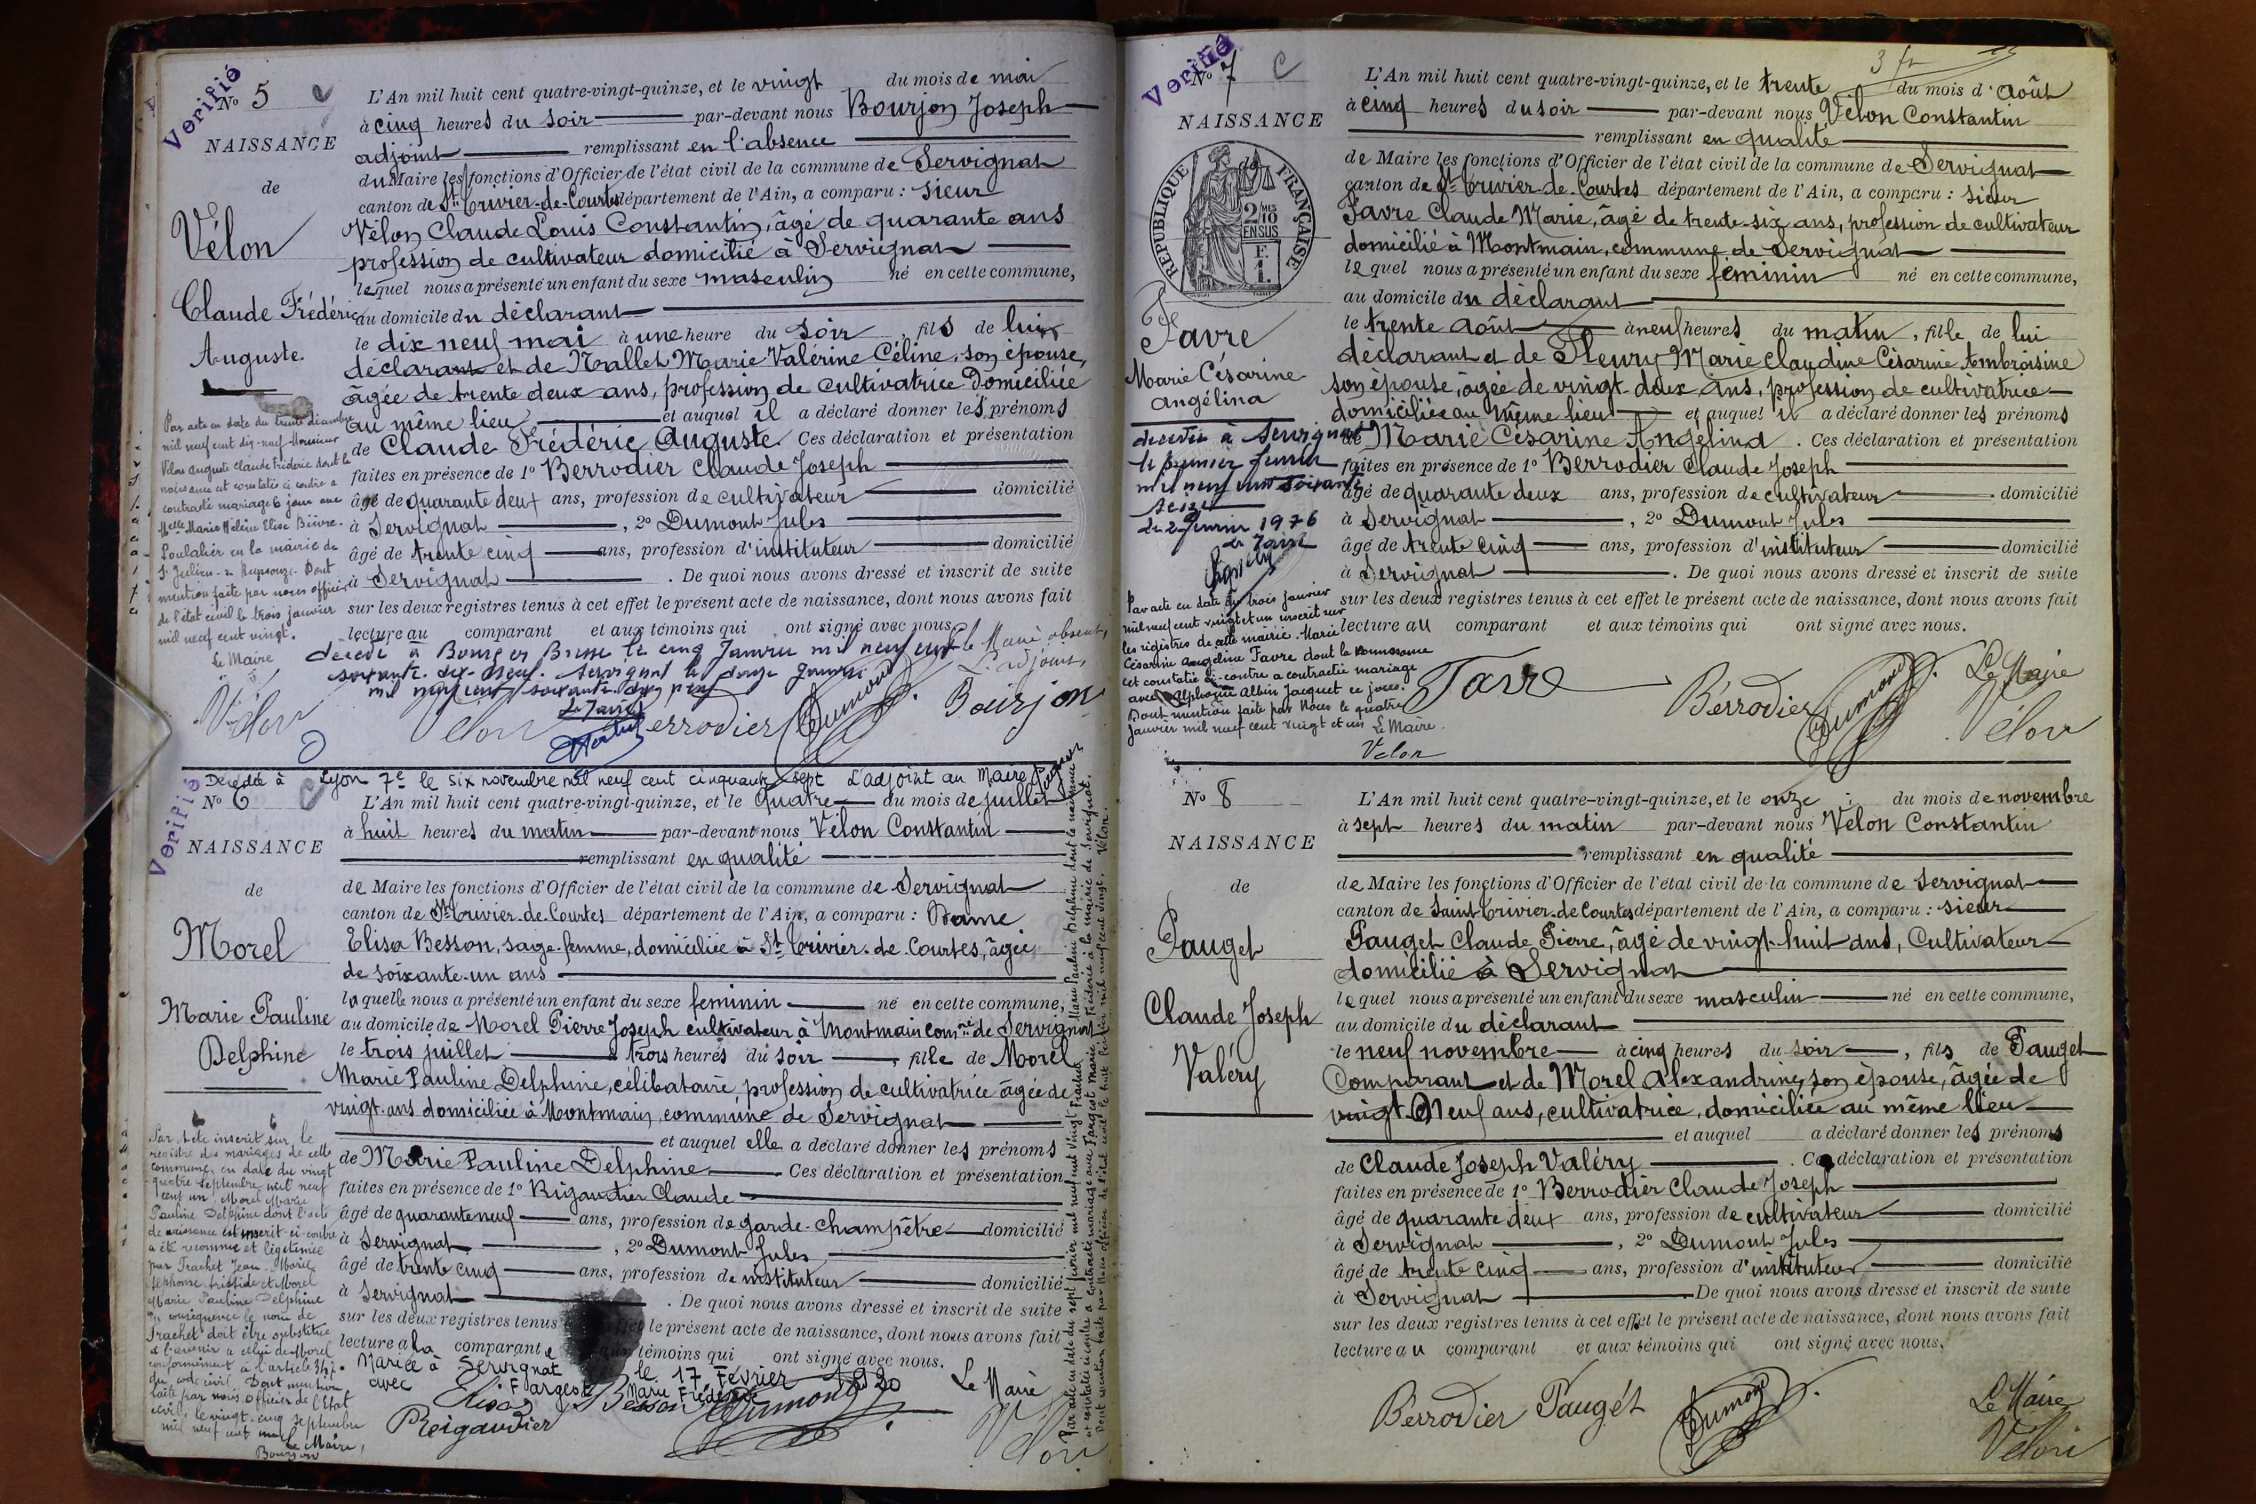 Verifié
No 5
NAISSANCE
de
Vélon
Claude Frédéric
Auguste.
L'An mil huit cent quatre-vingt-quinze, et le vingt du mois de mai
à cinq heures du soir par-devant nous Bourjon Joseph
adjoint remplissant en l'absence
du Maire les fonctions d'Officier de l'état civil de la commune de Servignat
canton de St Trivier-de-Courtes département de l'Ain, a comparu : sieur
Vélon Claude Louis Constantin, âgé de quarante ans
profession de cultivateur domicilié à Servignat
lequel nous a présenté un enfant du sexe masculin né en cette commune,
au domicile du déclarant
le dix neuf mai à une heure du soir, fils de lui
déclarant et de Mallet Marie Valérine Céline, son épouse,
âgée de trente deux ans, profession de cultivatrice Domiciliée
au même lieu et auquel il a déclaré donner les prénoms
de Claude Frédéric Auguste. Ces déclaration et présentation
faites en présence de 1o Berrodier Claude Joseph
âgé de quarante deux ans, profession de cultivateur domicilié
à Servignat, 2o Dumont Jules
âgé de trente cinq ans, profession d'instituteur domicilié
à Servignat. De quoi nous avons dressé et inscrit de suite
sur les deux registres tenus à cet effet le présent acte de naissance, dont nous avons fait
lecture au comparant et aux témoins qui ont signé avec nous.
Par acte en date du trente décembre
mil neuf cent dix-neuf Monsieur
Vélon Auguste Claude Frédéric dont la
naissance est constatée ci contre a
contracté mariage ce jour avec
Melle Marie Hélène Elise Bièvre-
Poulalier en la mairie de
St Julien-s-Reyssouze. Dont
mention faite par nous officier
de l'état civil le trois janvier
mil neuf cent vingt.
Le Maire
Vélon
décédé à Bourg en Bresse le cinq Janvier mil neuf cent
soixante-dix-neuf. Servignat le douze Janvier
mil neuf cent soixante-dix neuf
Le Maire
Pr le Maire absent,
L'adjoint,
Vélon Berrodier Dumont Bourjon
Décédée à Lyon 7e le six novembre mil neuf cent cinquante sept L'adjoint au Maire
Verifié
No 6
NAISSANCE
de
Morel
Marie Pauline
Delphine
L'An mil huit cent quatre-vingt-quinze, et le quatre du mois de juillet
à huit heures du matin par-devant nous Vélon Constantin
remplissant en qualité
de Maire les fonctions d'Officier de l'état civil de la commune de Servignat
canton de St Trivier-de-Courtes département de l'Ain, a comparu : Dame
Elisa Besson, sage-femme, domiciliée à St Trivier-de-Courtes, âgée
de soixante-un ans
laquelle nous a présenté un enfant du sexe feminin né en cette commune,
au domicile de Morel Pierre Joseph cultivateur à Montmain comne de Servignat
le trois juillet à trois heures du soir, fille de Morel
Marie Pauline Delphine, célibataire, profession de cultivatrice âgée de
vingt ans domiciliée à Montmain, commune de Servignat
et auquel elle a déclaré donner les prénoms
de Marie Pauline Delphine. Ces déclaration et présentation
faites en présence de 1o Rigaudier Claude
âgé de quarante neuf ans, profession de garde-champêtre domicilié
à Servignat, 2o Dumont Jules
âgé de trente cinq ans, profession de instituteur domicilié
à Servignat. De quoi nous avons dressé et inscrit de suite
sur les deux registres tenus à cet effet le présent acte de naissance, dont nous avons fait
lecture à la comparante et aux témoins qui ont signé avec nous.
Par acte inscrit sur le
registre des mariages de cette
commune, en date du vingt
quatre septembre mil neuf
cent un, Morel Marie
Pauline Delphine dont l'acte
de naissance est inscrit ci-contre
a été reconnue et légitimée
par Trachet Jean-Marie
Alphonse Aristide et Morel
Marie Pauline Delphine
En conséquence le nom de
Trachet doit être substitué
à l'avenir à celui de Morel
conformément à l'article
du code civil. Dont mention
faite par nous Officier de l'Etat
civil, le vingt-cinq septembre
mil neuf cent un
Le Maire,
Bourjon
Mariée à Servignat le 17 Février 1920
avec Fargeot Marie Frédéric
Elisa Besson Dumont Le Maire
Reigaudier Vélon
Par acte en date du sept février mil neuf cent vingt Trachet Marie Pauline Delphine dont la naissance
est constatée ci-contre a contracté mariage avec Fargeot Marie Frédéric à la mairie de Servignat.
Dont mention faite par Nous officier de l'état civil le huit février mil neuf cent vingt. Vélon.
Verifié
No 7
3 fr
NAISSANCE
de
RÉPUBLIQUE FRANÇAISE
2 MES
10
EN SUS
F.
1.
Favre
Marie Césarine
Angélina
L'An mil huit cent quatre-vingt-quinze, et le trente du mois d'Août
à cinq heures du soir par-devant nous Vélon Constantin
remplissant en qualité
de Maire les fonctions d'Officier de l'état civil de la commune de Servignat
canton de St Trivier-de-Courtes département de l'Ain, a comparu : sieur
Favre Claude Marie, âgé de trente-six ans, profession de cultivateur
domicilié à Montmain, commune de Servignat
lequel nous a présenté un enfant du sexe féminin né en cette commune,
au domicile du déclarant
le trente Août à neuf heures du matin, fille de lui
déclarant et de Fleury Marie Claudine Césarine Ambroisine
son épouse, âgée de vingt-deux ans, profession de cultivatrice
domiciliée au même lieu et auquel il a déclaré donner les prénoms
de Marie Césarine Angélina. Ces déclaration et présentation
faites en présence de 1o Berrodier Claude Joseph
âgé de quarante deux ans, profession de cultivateur domicilié
à Servignat, 2o Dumont Jules
âgé de trente cinq ans, profession d'instituteur domicilié
à Servignat. De quoi nous avons dressé et inscrit de suite
sur les deux registres tenus à cet effet le présent acte de naissance, dont nous avons fait
lecture au comparant et aux témoins qui ont signé avec nous.
décédée à Servignat
le premier février
mil neuf cent soixante
seize
le 2 février 1976
Le Maire
Par acte en date du trois janvier
mil neuf cent vingt et un inscrit sur
les registres de cette mairie. Marie
Césarine Angéline Favre dont la naissance
est constatée ci-contre a contractée mariage
avec Alphonse Albin Jacquet ce jour.
Dont mention faite par Nous le quatre
Janvier mil neuf cent vingt et un Le Maire.
Vélon
Favre Berrodier Dumont Le Maire
Vélon
No 8
NAISSANCE
de
Pauget
Claude Joseph
Valéry
L'An mil huit cent quatre-vingt-quinze, et le onze du mois de novembre
à sept heures du matin par-devant nous Vélon Constantin
remplissant en qualité
de Maire les fonctions d'Officier de l'état civil de la commune de Servignat
canton de Saint Trivier-de-Courtes département de l'Ain, a comparu : sieur
Pauget Claude Pierre, âgé de vingt-huit ans, Cultivateur
domicilié à Servignat
lequel nous a présenté un enfant du sexe masculin né en cette commune,
au domicile du déclarant
le neuf novembre à cinq heures du soir, fils de Pauget
Comparant et de Morel Alexandrine, son épouse, âgée de
vingt Neuf ans, cultivatrice, domiciliée au même lieu
et auquel a déclaré donner les prénoms
de Claude Joseph Valéry. Ces déclaration et présentation
faites en présence de 1o Berrodier Claude Joseph
âgé de quarante deux ans, profession de cultivateur domicilié
à Servignat, 2o Dumont Jules
âgé de trente cinq ans, profession d'instituteur domicilié
à Servignat De quoi nous avons dressé et inscrit de suite
sur les deux registres tenus à cet effet le présent acte de naissance, dont nous avons fait
lecture au comparant et aux témoins qui ont signé avec nous.
Berrodier Pauget Dumont Le Maire
Vélon